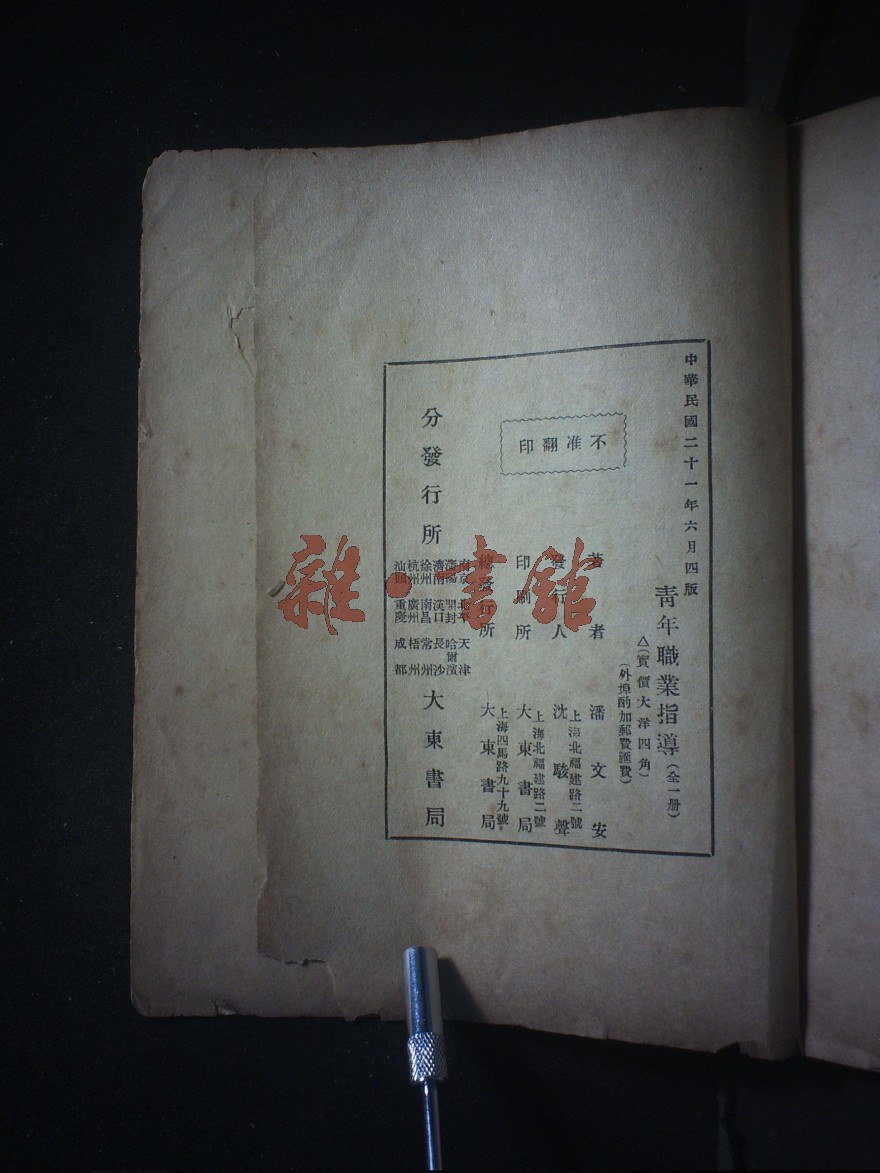 中華民國二十一年六月四版
青年職業指導（全一册）
△（實價大洋四角）
（外埠酌加郵費匯費）
不准翻印
著者 潘文安
發行人 沈駿聲
上海北福建路二號
印刷所 大東書局
上海北福建路二號
總發行所 大東書局
上海四馬路九十九號
分發行所 大東書局
南京 北平 天津
瀋陽 開封 哈爾濱
濟南 漢口 長沙
徐州 南昌 常州
杭州 廣州 梧州
汕頭 重慶 成都
雜·書館